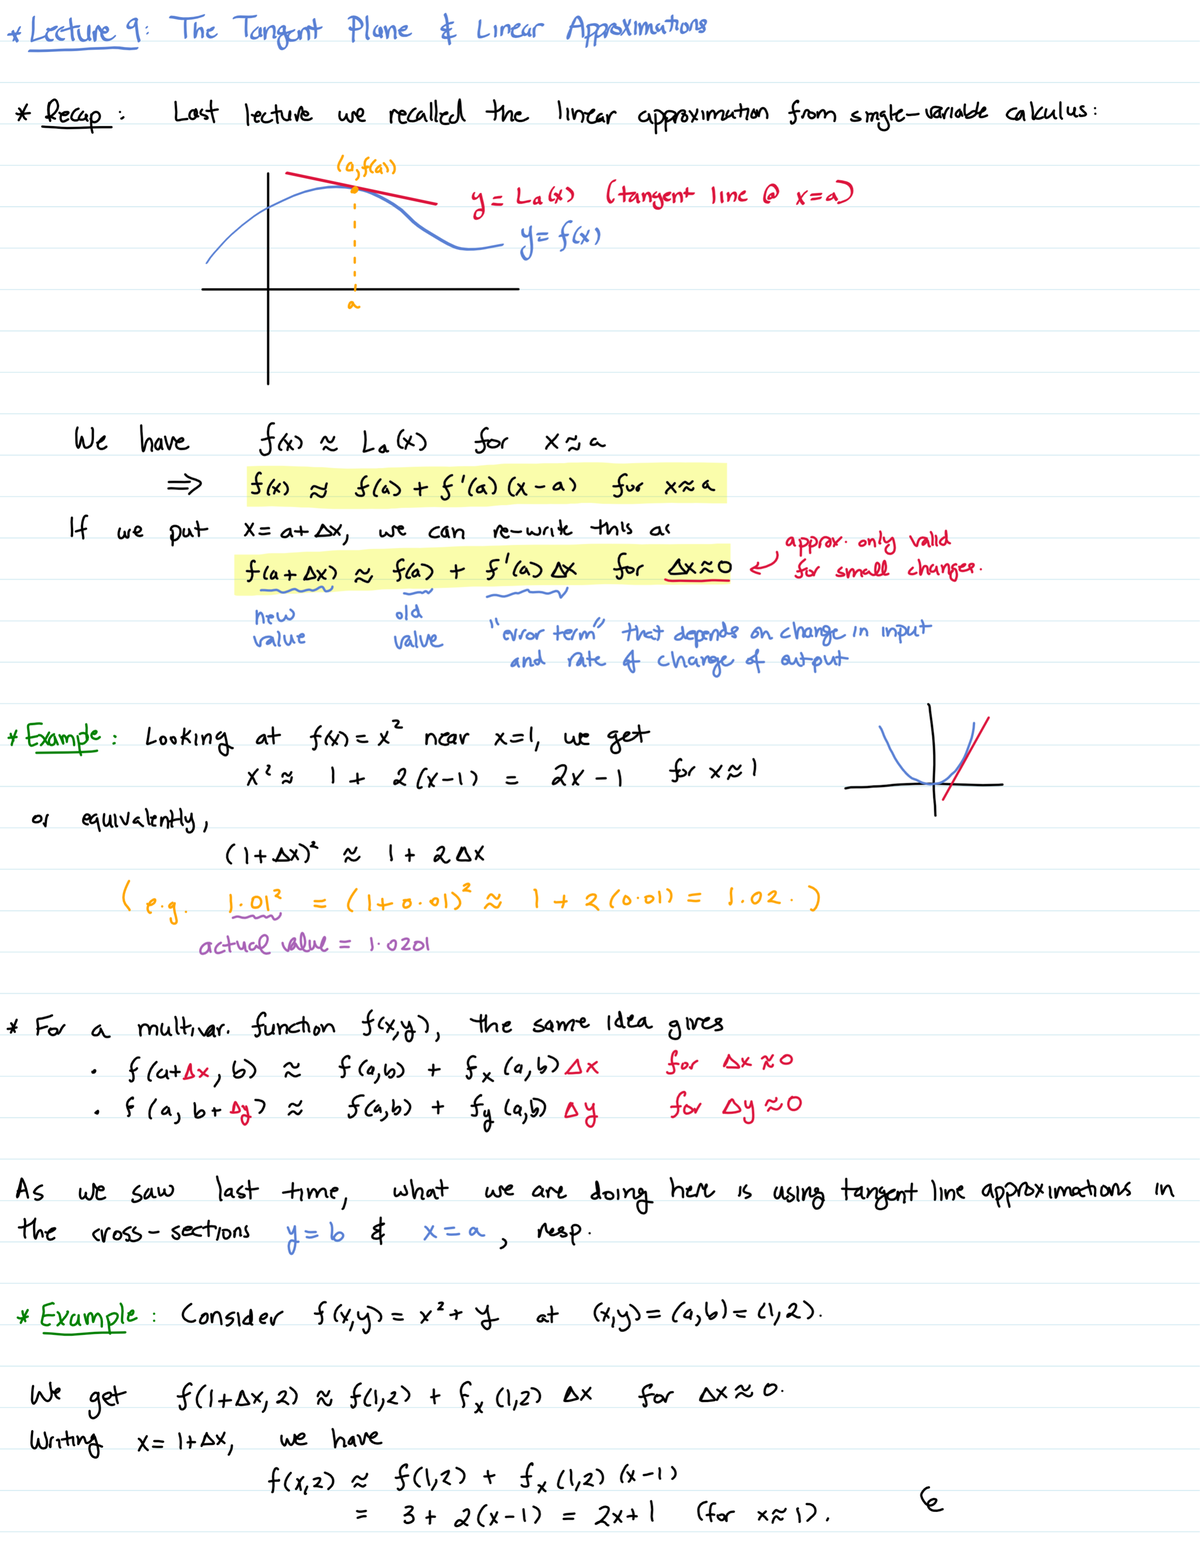 * Lecture 9: The Tangent Plane & Linear Approximations
* Recap: Last lecture we recalled the linear approximation from single-variable calculus:
(a,f(a))
y = La(x) (tangent line @ x=a)
y = f(x)
a
We have f(x) ≈ La(x) for x≈a
⇒ f(x) ≈ f(a) + f'(a)(x-a) for x≈a
If we put x = a+Δx, we can re-write this as
f(a+Δx) ≈ f(a) + f'(a)Δx for Δx≈0
approx. only valid
for small changes.
new value
old value
"error term" that depends on change in input
and rate of change of output
* Example: Looking at f(x) = x² near x=1, we get
x² ≈ 1 + 2(x-1) = 2x-1 for x≈1
or equivalently,
(1+Δx)² ≈ 1 + 2Δx
(e.g. 1.01² = (1+0.01)² ≈ 1 + 2(0.01) = 1.02.)
actual value = 1.0201
* For a multivar. function f(x,y), the same idea gives
• f(a+Δx, b) ≈ f(a,b) + fx(a,b)Δx for Δx≈0
• f(a, b+Δy) ≈ f(a,b) + fy(a,b)Δy for Δy≈0
As we saw last time, what we are doing here is using tangent line approximations in
the cross-sections y=b & x=a, resp.
* Example: Consider f(x,y) = x²+y at (x,y) = (a,b) = (1,2).
We get f(1+Δx, 2) ≈ f(1,2) + fx(1,2)Δx for Δx≈0.
Writing x = 1+Δx, we have
f(x,2) ≈ f(1,2) + fx(1,2)(x-1)
= 3 + 2(x-1) = 2x+1 (for x≈1).